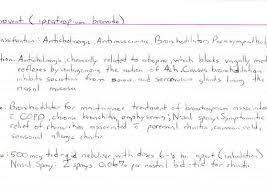 ovent (ipratropium bromide)
assification: Anticholinergic, Antimuscarinic, Bronchodilator, Parasympathol
tion: Anticholinergic, chemically related to atropine, which blocks vagally med
reflexes by antagonizing the action of Ach. Causes bronchodilation
inhibits secretion from serous and seromucous glands lining th
nasal mucosa
s: Bronchodilator for maintenance treatment of bronchospasm associated
c COPD, chronic bronchitis, emphysema; Nasal spray: Symptomatic
relief of rhinorrhea associated c perennial rhinitis, common cold,
seasonal allergic rhinitis
se: 500 mcg tid-qid nebulizer with doses 6-8 hr apart (inhalation)
Nasal Spray: 2 sprays 0.06% per nostril bid-tid for rhinitis